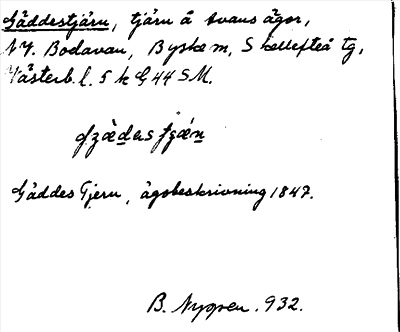 Gäddestjärn, tjärn å Svans ägor,
NV. Bodavan, Byske m, Skellefteå tg,
Västerb. l. 5 k G 44 SM.
Gäddes Tjern, ägobeskrivning 1847.
B. Nygren. 932.